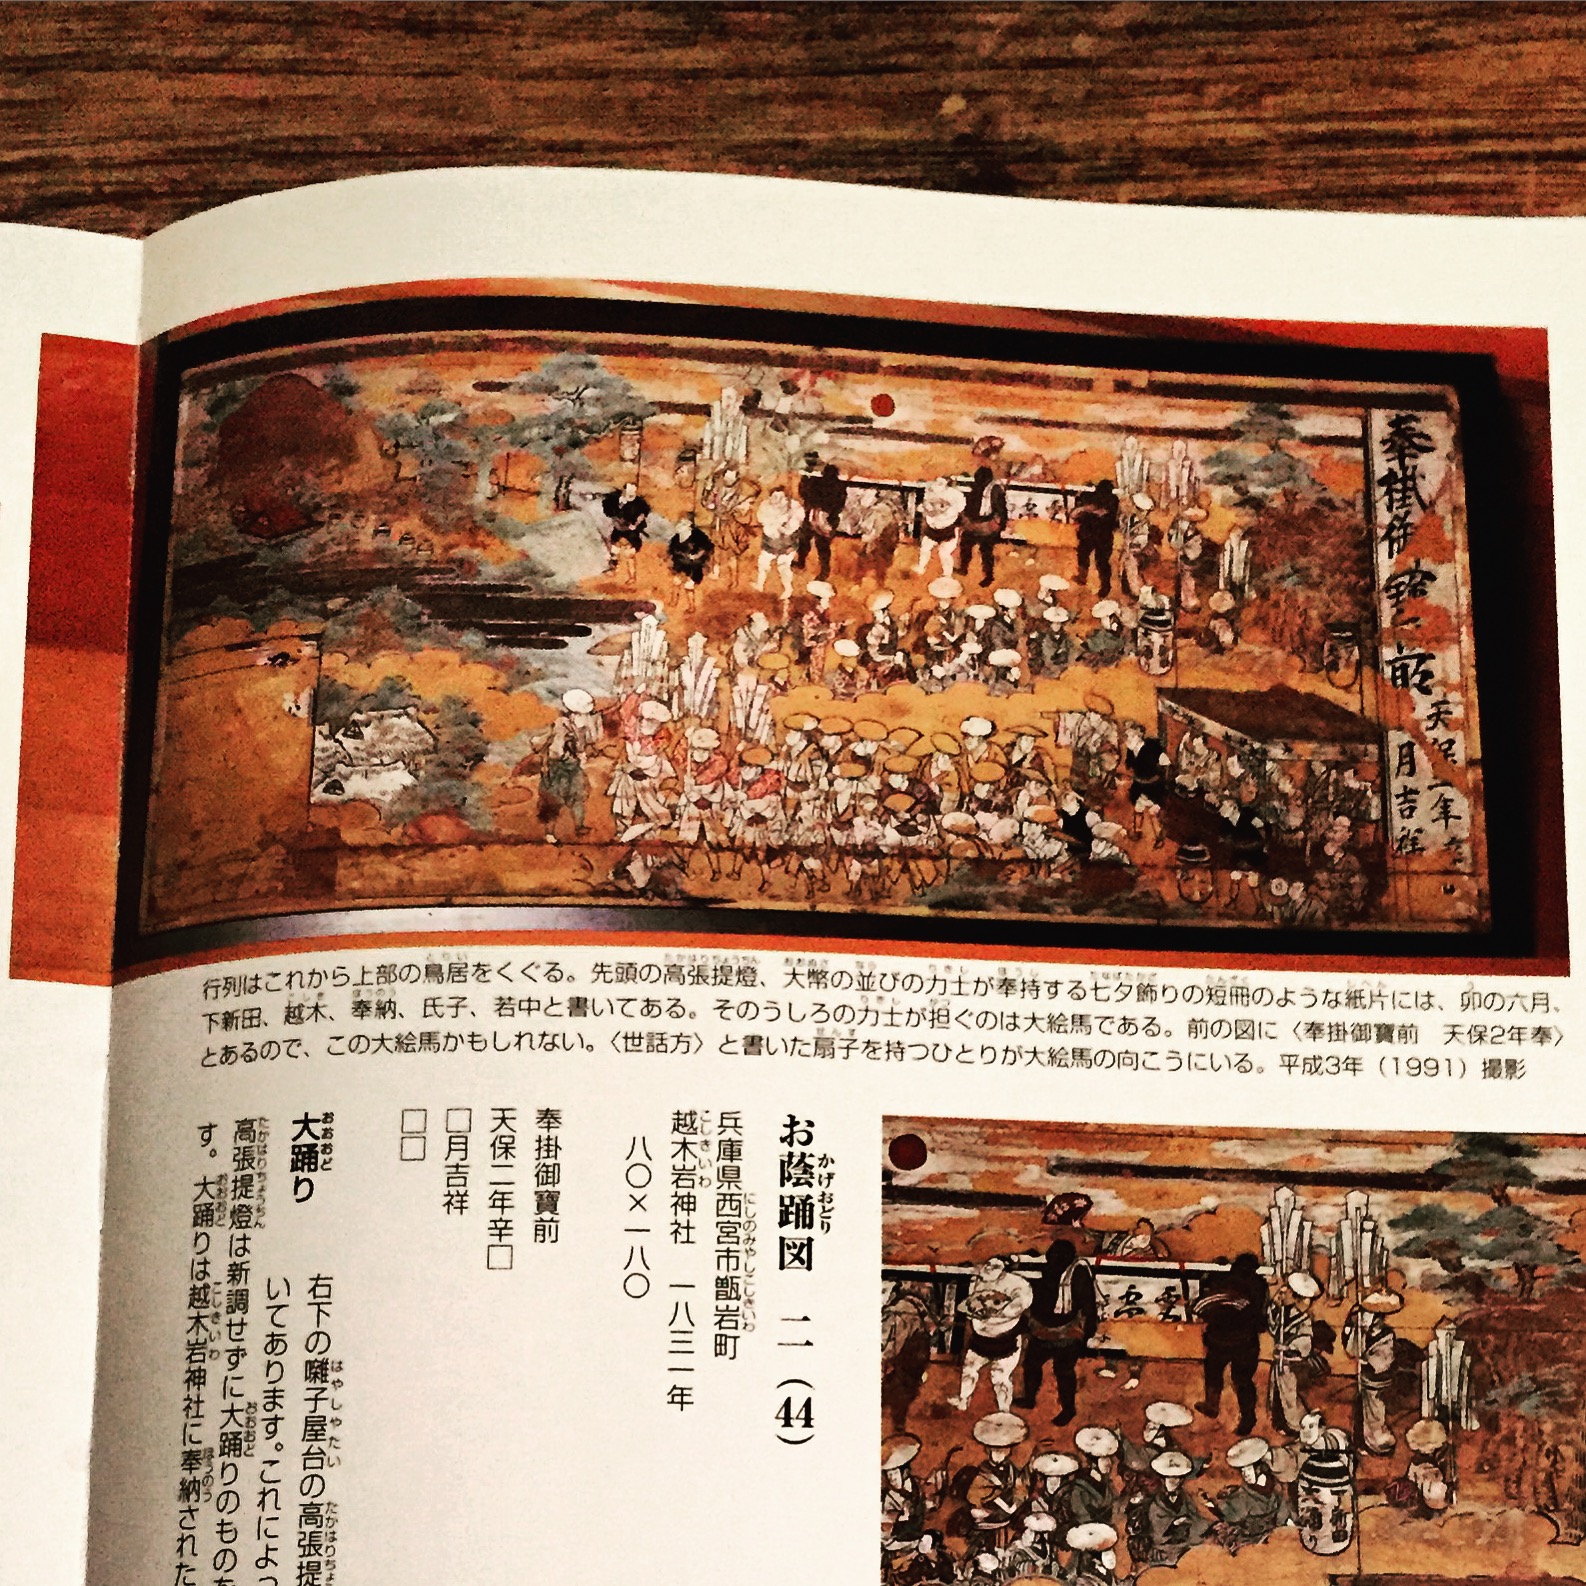 奉掛御寶前
天保二年
月吉祥
行列はこれから上部の鳥居をくぐる。先頭の高張提燈、大幣の並びの力士が奉持する七夕飾りの短冊のような紙片には、卯の六月、
下新田、越木、奉納、氏子、若中と書いてある。そのうしろの力士が担ぐのは大絵馬である。前の図に〈奉掛御寶前　天保2年奉〉
とあるので、この大絵馬かもしれない。〈世話方〉と書いた扇子を持つひとりが大絵馬の向こうにいる。平成3年（1991）撮影
お蔭踊図　二（44）
兵庫県西宮市甑岩町
越木岩神社　一八三一年
八〇×一八〇
奉掛御寶前
天保二年辛□
□月吉祥
□□
大踊り
右下の囃子屋台の高張提
いてあります。これによっ
高張提燈は新調せずに大踊りのものを
す。大踊りは越木岩神社に奉納された